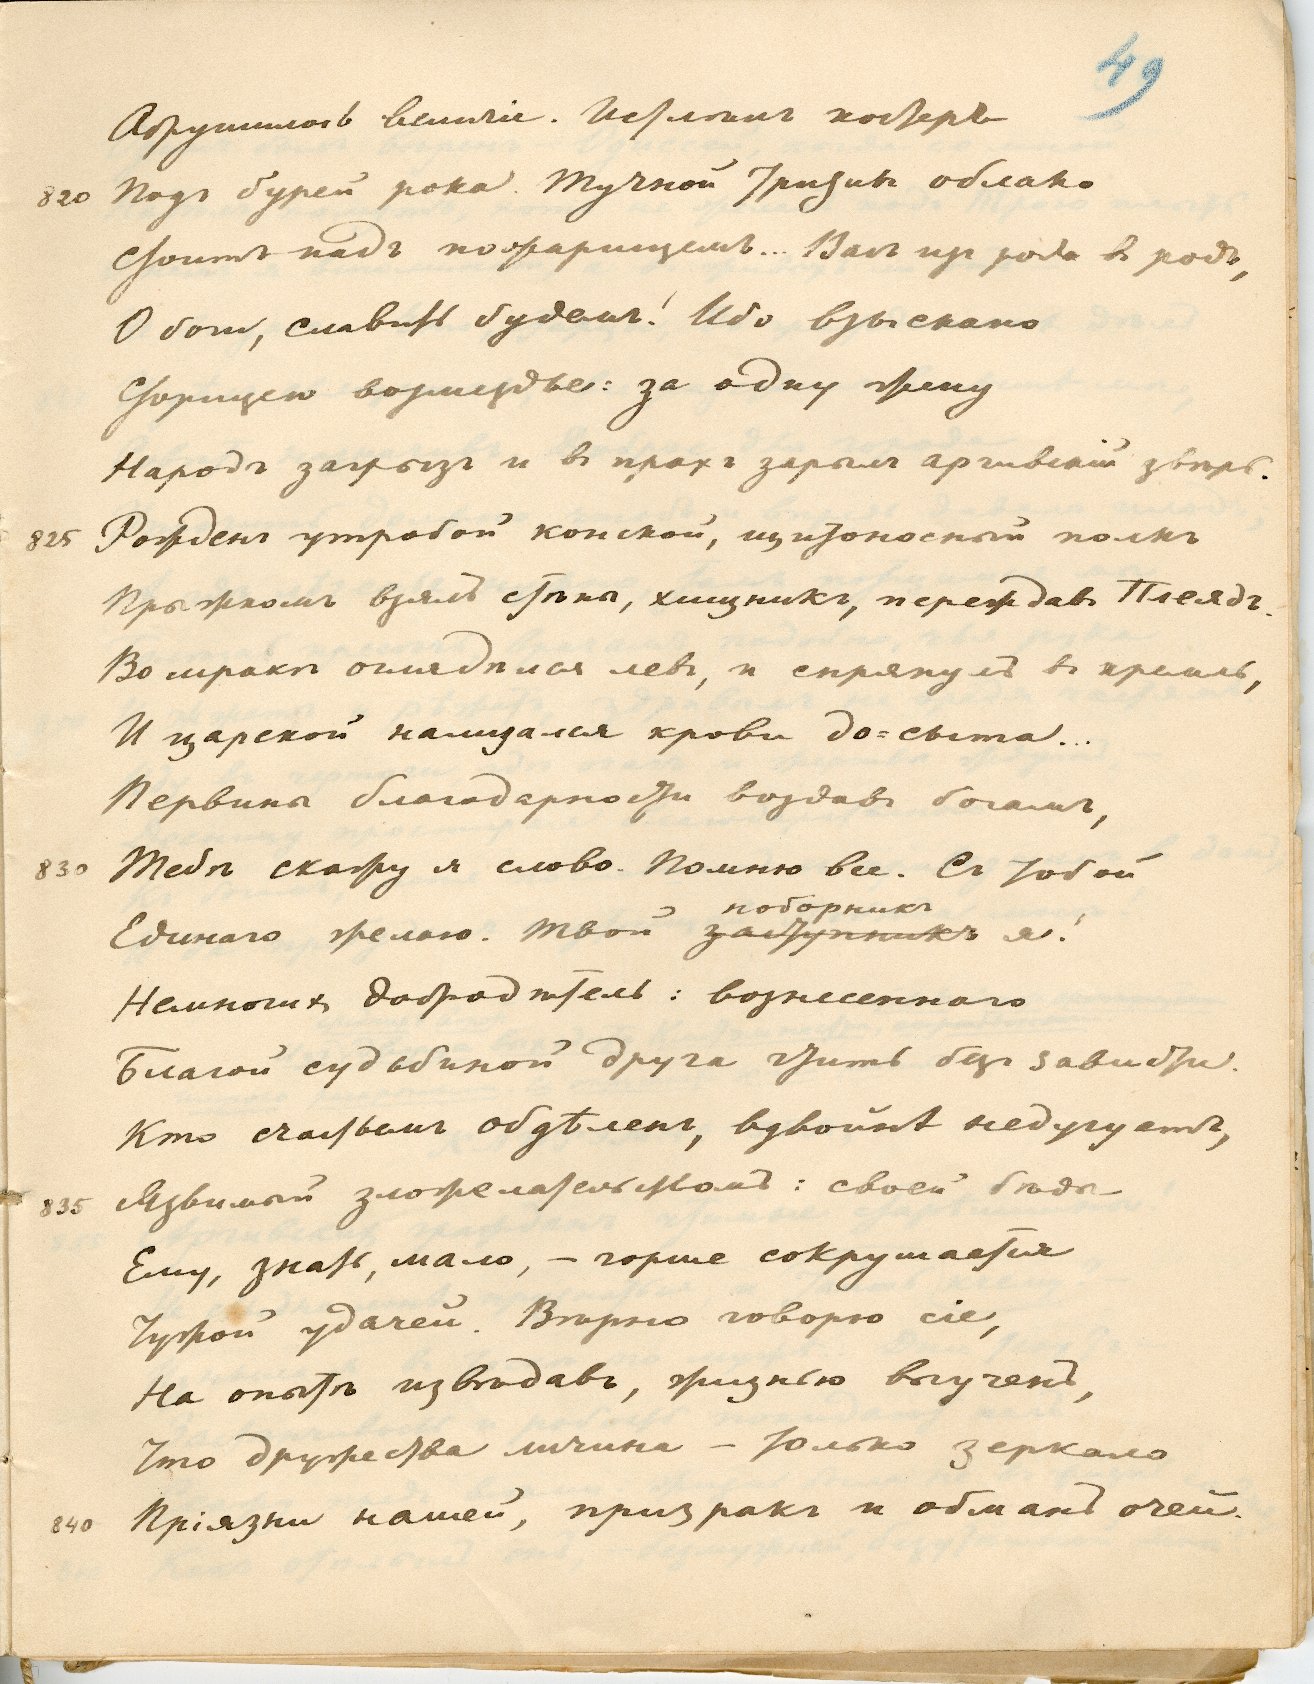 49
Обрушилось величіе. Истлѣлъ костеръ
820 Подъ бурей рока. Тучной тризны облако
Стоитъ надъ пожарищемъ... Васъ изъ рода въ родъ,
О боги, славить будемъ! Ибо взыскано
Сторицею возмездье: за одну жену
Народъ загрызъ и въ прахъ зарылъ аргивскій звѣрь.
825 Рожденъ утробой конской, щитоносный полкъ
Прыжкомъ взялъ стѣны, хищникъ, переждавъ Плеядъ.
Во мракѣ оглядѣлся левъ, и спрянулъ въ кремль,
И царской нализался крови до=сыта...
Первины благодарности воздавъ богамъ,
830 Тебѣ скажу я слово. Помню все. Съ тобой
поборникъ
Единаго желаю. Твой заступникъ я!
Немногихъ добродѣтель: вознесеннаго
Благой судьбиной друга чтить безъ зависти.
Кто счастьемъ обдѣленъ, вдвойнѣ недугуетъ,
835 Язвимый зложелательствомъ: своей бѣды
Ему, знать, мало, – горше сокрушается
Чужой удачей. Вѣрно говорю сіе,
На опытѣ извѣдавъ, жизнью выученъ,
Что дружества личина – только зеркало
840 Пріязни нашей, призракъ и обманъ очей.